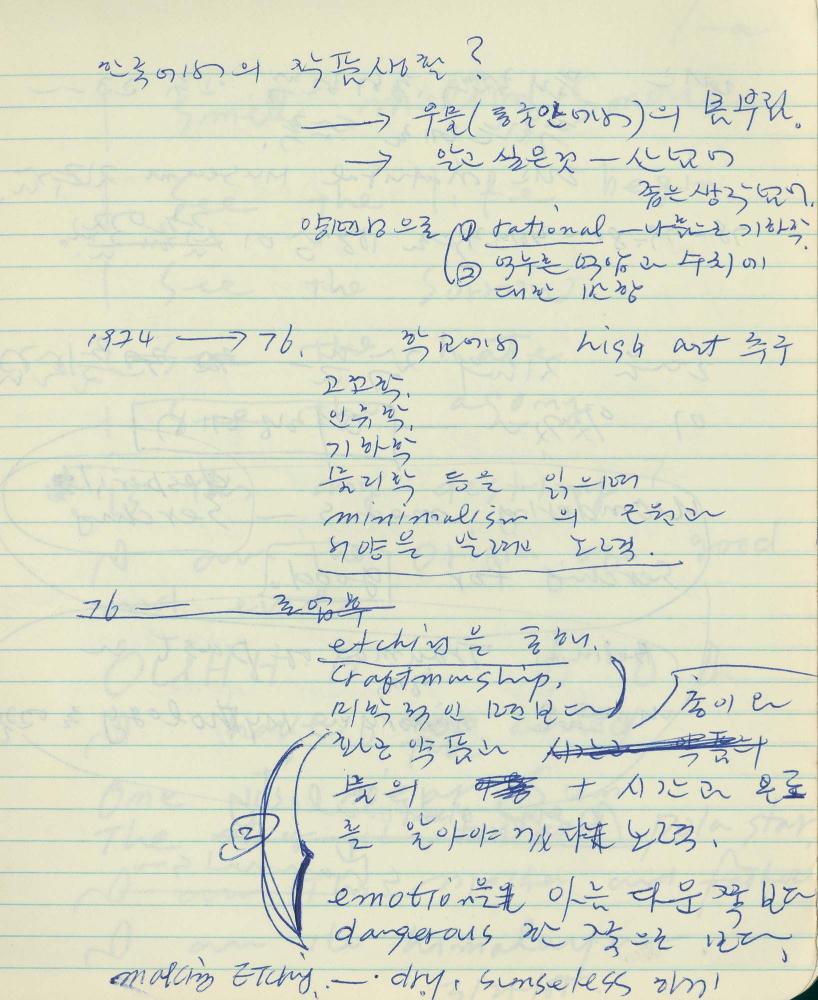 한국에서의 작품생활?
→ 우물(동굴안에서)의 몸부림.
→ 알고 싶은것 — 산넘어
좋은생각넘어.
양면성으로 ① rational — 나쁜건 기하학.
② 억누른 억압과 수치에
대한 반항
1974 → 76. 학교에서 high art 추구
고고학,
인류학,
기하학
물리학 등을 읽으며
minimalism의 근원과
서양을 알려고 노력.
76 — 졸업후
etching을 통해.
Craftmanship,
미학적인 면보다 종이와
화공약품과
물의 + 시간과 온도
를 알아야 노력.
②
emotion을 아름다운 쪽보다
dangerous 한 쪽으로 보다,
making Etching. — dry, sunseless 하기